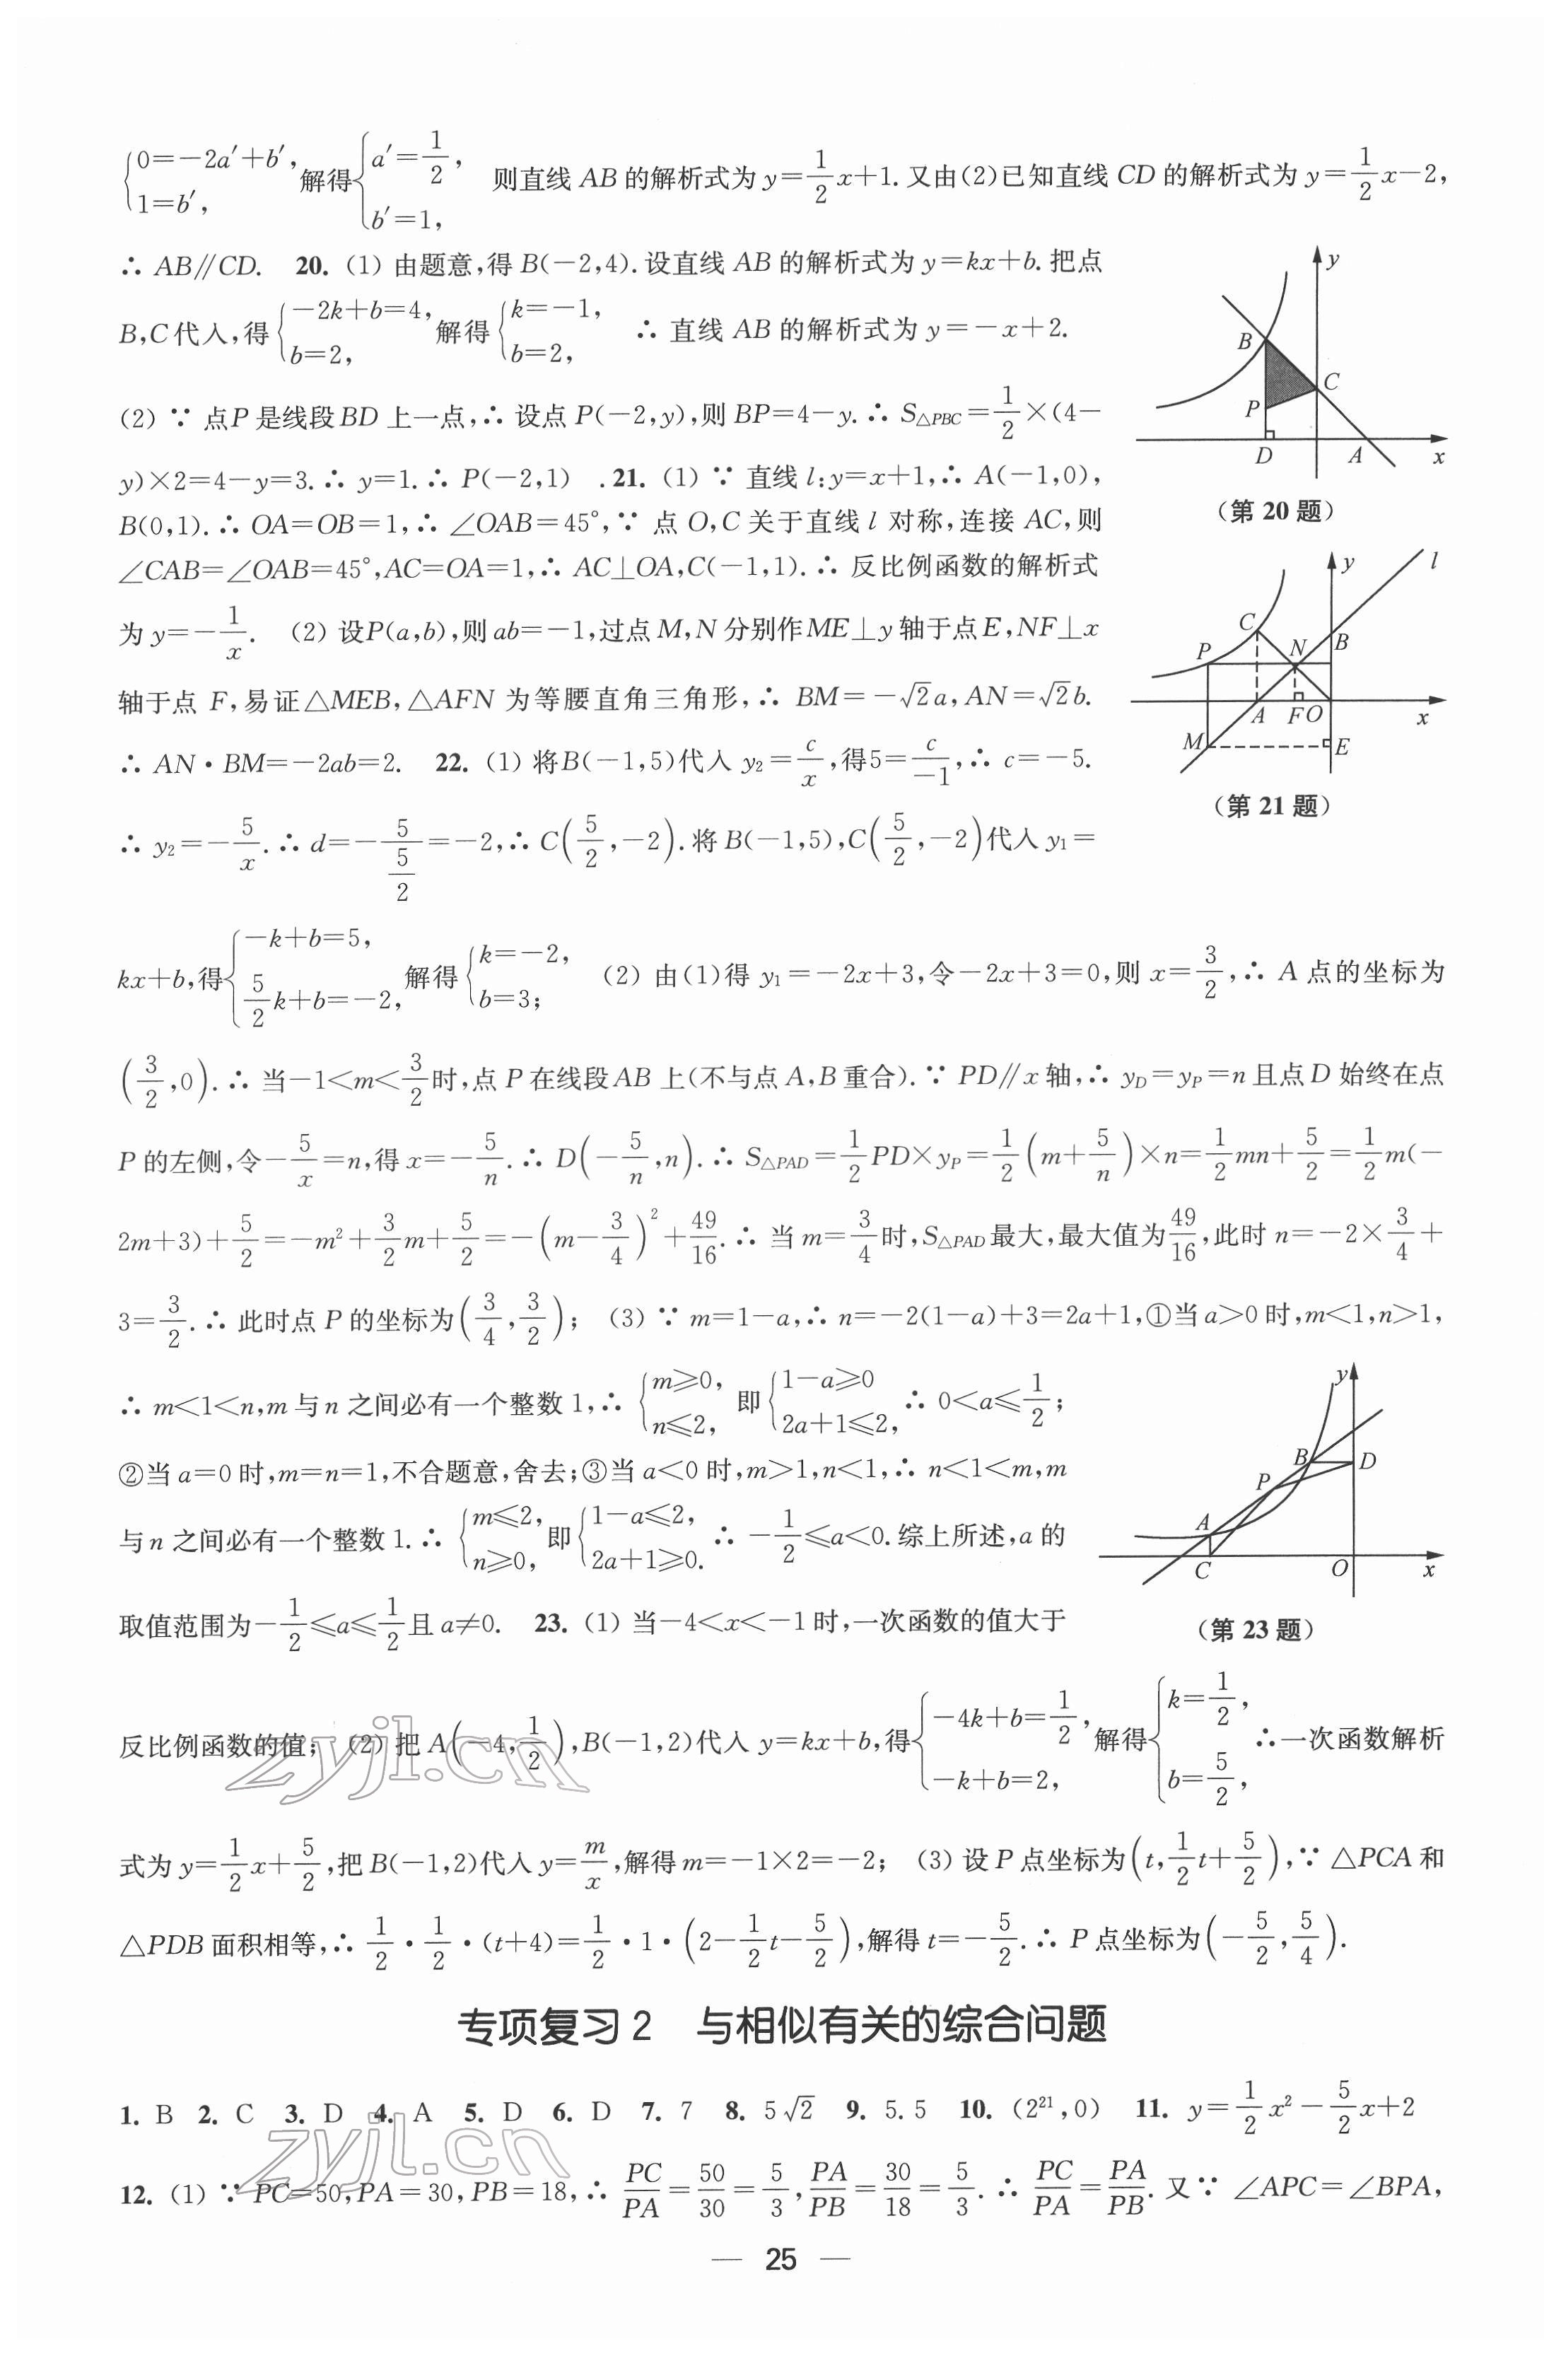 {0=-2a′+b′, 1=b′, 解得{a′=1/2, b′=1, 则直线 AB 的解析式为 y=1/2x+1. 又由(2)已知直线 CD 的解析式为 y=1/2x-2,
∴ AB∥CD. 20. (1) 由题意,得 B(-2,4). 设直线 AB 的解析式为 y=kx+b. 把点
B,C代入,得{-2k+b=4, b=2, 解得{k=-1, b=2, ∴ 直线 AB 的解析式为 y=-x+2.
(2) ∵ 点P 是线段BD 上一点,∴ 设点 P(-2,y),则 BP=4-y. ∴ S△PBC=1/2×(4-
y)×2=4-y=3. ∴ y=1. ∴ P(-2,1) .21. (1) ∵ 直线 l:y=x+1,∴ A(-1,0),
B(0,1). ∴ OA=OB=1,∴ ∠OAB=45°,∵ 点 O,C 关于直线 l 对称,连接 AC,则
∠CAB=∠OAB=45°,AC=OA=1,∴ AC⊥OA,C(-1,1). ∴ 反比例函数的解析式
为 y=-1/x. (2) 设P(a,b),则 ab=-1,过点 M,N 分别作ME⊥y 轴于点E,NF⊥x
轴于点 F,易证△MEB,△AFN 为等腰直角三角形,∴ BM=-√2a,AN=√2b.
∴ AN·BM=-2ab=2. 22. (1) 将B(-1,5)代入 y₂=c/x,得5=c/-1,∴ c=-5.
∴ y₂=-5/x. ∴ d=-5/(5/2)=-2,∴ C(5/2,-2). 将 B(-1,5),C(5/2,-2)代入 y₁=
kx+b,得{-k+b=5, 5/2k+b=-2, 解得{k=-2, b=3; (2) 由(1)得 y₁=-2x+3,令-2x+3=0,则 x=3/2,∴ A 点的坐标为
(3/2,0). ∴ 当-1<m<3/2时,点 P 在线段AB 上(不与点 A,B 重合). ∵ PD∥x 轴,∴ yD=yP=n 且点D 始终在点
P 的左侧,令-5/x=n,得 x=-5/n. ∴ D(-5/n,n). ∴ S△PAD=1/2PD×yP=1/2(m+5/n)×n=1/2mn+5/2=1/2m(-
2m+3)+5/2=-m²+3/2m+5/2=-(m-3/4)²+49/16. ∴ 当 m=3/4时,S△PAD最大,最大值为49/16,此时 n=-2×3/4+
3=3/2. ∴ 此时点 P 的坐标为(3/4,3/2); (3) ∵ m=1-a,∴ n=-2(1-a)+3=2a+1,①当 a>0 时,m<1,n>1,
∴ m<1<n,m 与 n 之间必有一个整数 1,∴ {m≥0, n≤2, 即{1-a≥0 2a+1≤2, ∴ 0<a≤1/2;
②当 a=0 时,m=n=1,不合题意,舍去;③当 a<0 时,m>1,n<1,∴ n<1<m,m
与 n 之间必有一个整数 1. ∴ {m≤2, n≥0, 即{1-a≤2, 2a+1≥0. ∴ -1/2≤a<0. 综上所述,a 的
取值范围为-1/2≤a≤1/2且 a≠0. 23. (1) 当-4<x<-1 时,一次函数的值大于
反比例函数的值; (2) 把 A(-4,1/2),B(-1,2)代入 y=kx+b,得{-4k+b=1/2, -k+b=2, 解得{k=1/2, b=5/2, ∴一次函数解析
式为 y=1/2x+5/2,把 B(-1,2)代入 y=m/x,解得 m=-1×2=-2; (3) 设 P 点坐标为(t,1/2t+5/2),∵ △PCA 和
△PDB 面积相等,∴ 1/2·1/2·(t+4)=1/2·1·(2-1/2t-5/2),解得 t=-5/2. ∴ P 点坐标为(-5/2,5/4).
y
B
C
P
D
A
x
(第 20 题)
y
l
C
P
N
B
A
F
O
x
M
E
(第 21 题)
y
B
D
P
A
C
O
x
(第 23 题)
专项复习 2 与相似有关的综合问题
1. B 2. C 3. D 4. A 5. D 6. D 7. 7 8. 5√2 9. 5.5 10. (2²¹,0) 11. y=1/2x²-5/2x+2
12. (1) ∵ PC=50,PA=30,PB=18,∴ PC/PA=50/30=5/3,PA/PB=30/18=5/3. ∴ PC/PA=PA/PB. 又∵ ∠APC=∠BPA,
— 25 —
zyjl.cn
zyjl.cn